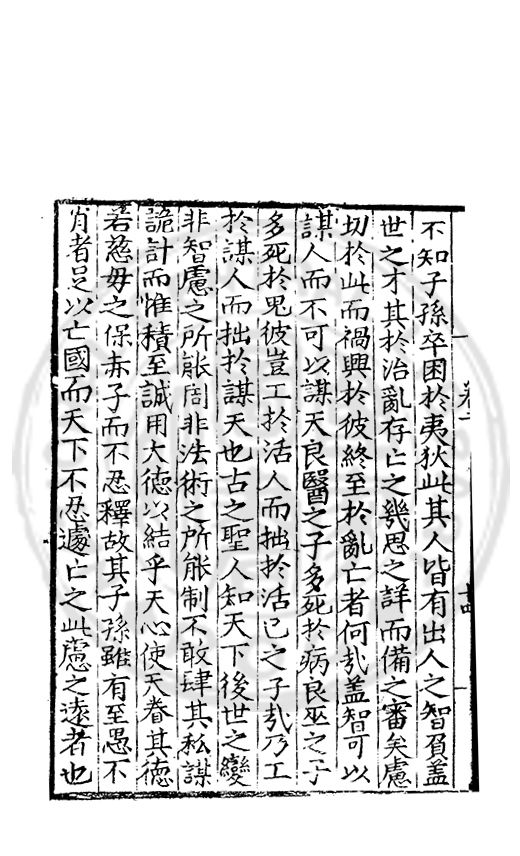 不知子孫卒困於夷狄此其人皆有出人之智負盖
世之才其於治亂存亡之幾思之詳而備之審矣慮
切於此而禍興於彼終至於亂亡者何㢤盖智可以
謀人而不可以謀天良醫之子多死於病良巫之子
多死於鬼彼豈工於活人而拙於活己之子㢤乃工
於謀人而拙於謀天也古之聖人知天下後世之變
非智慮之所能周非法術之所能制不敢肆其私謀
詭計而惟積至誠用大德以結乎天心使天眷其德
若慈母之保赤子而不忍釋故其子孫雖有至愚不
肖者足以亡國而天下不忍遽亡之此慮之遠者也